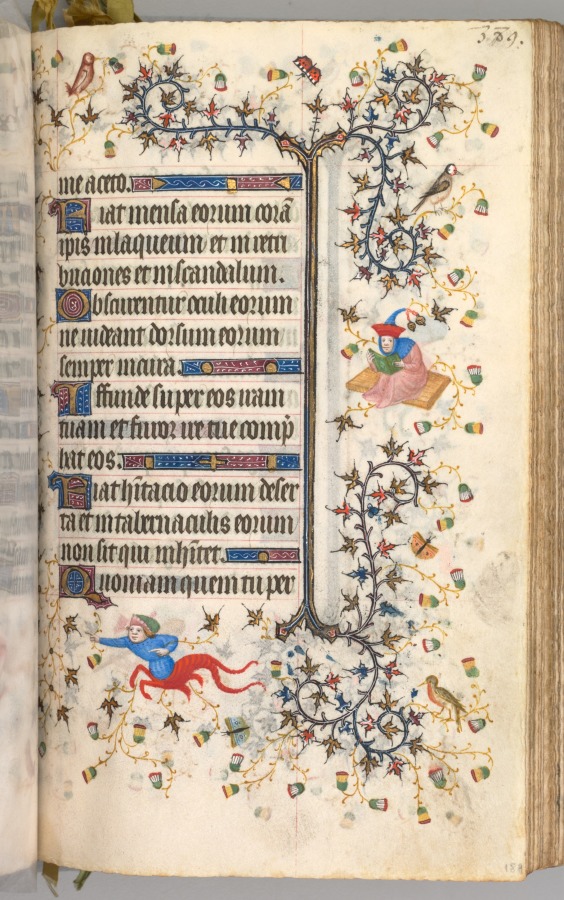 me aceto.
Fiat mensa eorum corã
ip̃is in laqueum et in retri
buciones et in scandalum.
Obscurentur oculi eorum
ne uideant dorsum eorum
semper incurua.
Effunde super eos iram
tuam et furor ire tue comp̃
hat eos.
Fiat hĩtacio eorum deser
ta et in tabernaculis eorum
non sit qui inhĩtet.
Quoniam quem tu per